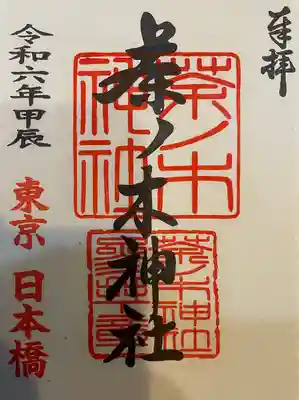 奉拝
茶ノ木神社
茶ノ木
神社
茶ノ木神
令和六年甲辰
東京 日本橋